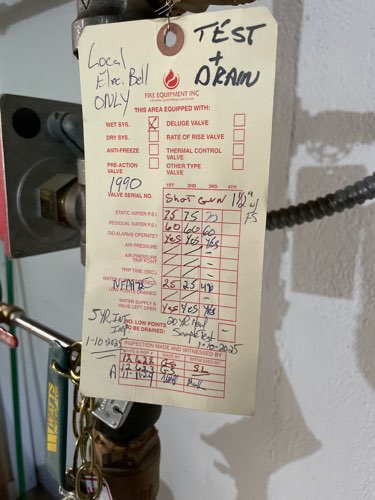 TEST
+
DRAIN
Local
Elec. Bell
ONLY
FIRE EQUIPMENT INC.
THIS AREA EQUIPPED WITH:
WET SYS. DELUGE VALVE
DRY SYS. RATE OF RISE VALVE
ANTI-FREEZE THERMAL CONTROL VALVE
PRE-ACTION VALVE OTHER TYPE VALVE
1990
1ST 2ND 3RD 4TH
VALVE SERIAL NO. Shot Gun 1 1/2" w/ FS
STATIC WATER P.S.I 75 75
RESIDUAL WATER P.S.I 60 60 60
DID ALARMS OPERATE? Yes Yes Yes
AIR PRESSURE
AIR PRESSURE TRIP POINT
TRIP TIME (SEC.)
WATER 25 25
DRAINED
WATER SUPPLY & VALVE LEFT OPEN Yes Yes Yes
5 YR. Int.
1-10-2025
NO. LOW POINTS TO BE DRAINED:
20 YR Head
Sample Test
1-10-2025
INSPECTION MADE AND WITNESSED BY
DATE & INSP. MADE BY WITNESSED BY
SL
A
WATTS